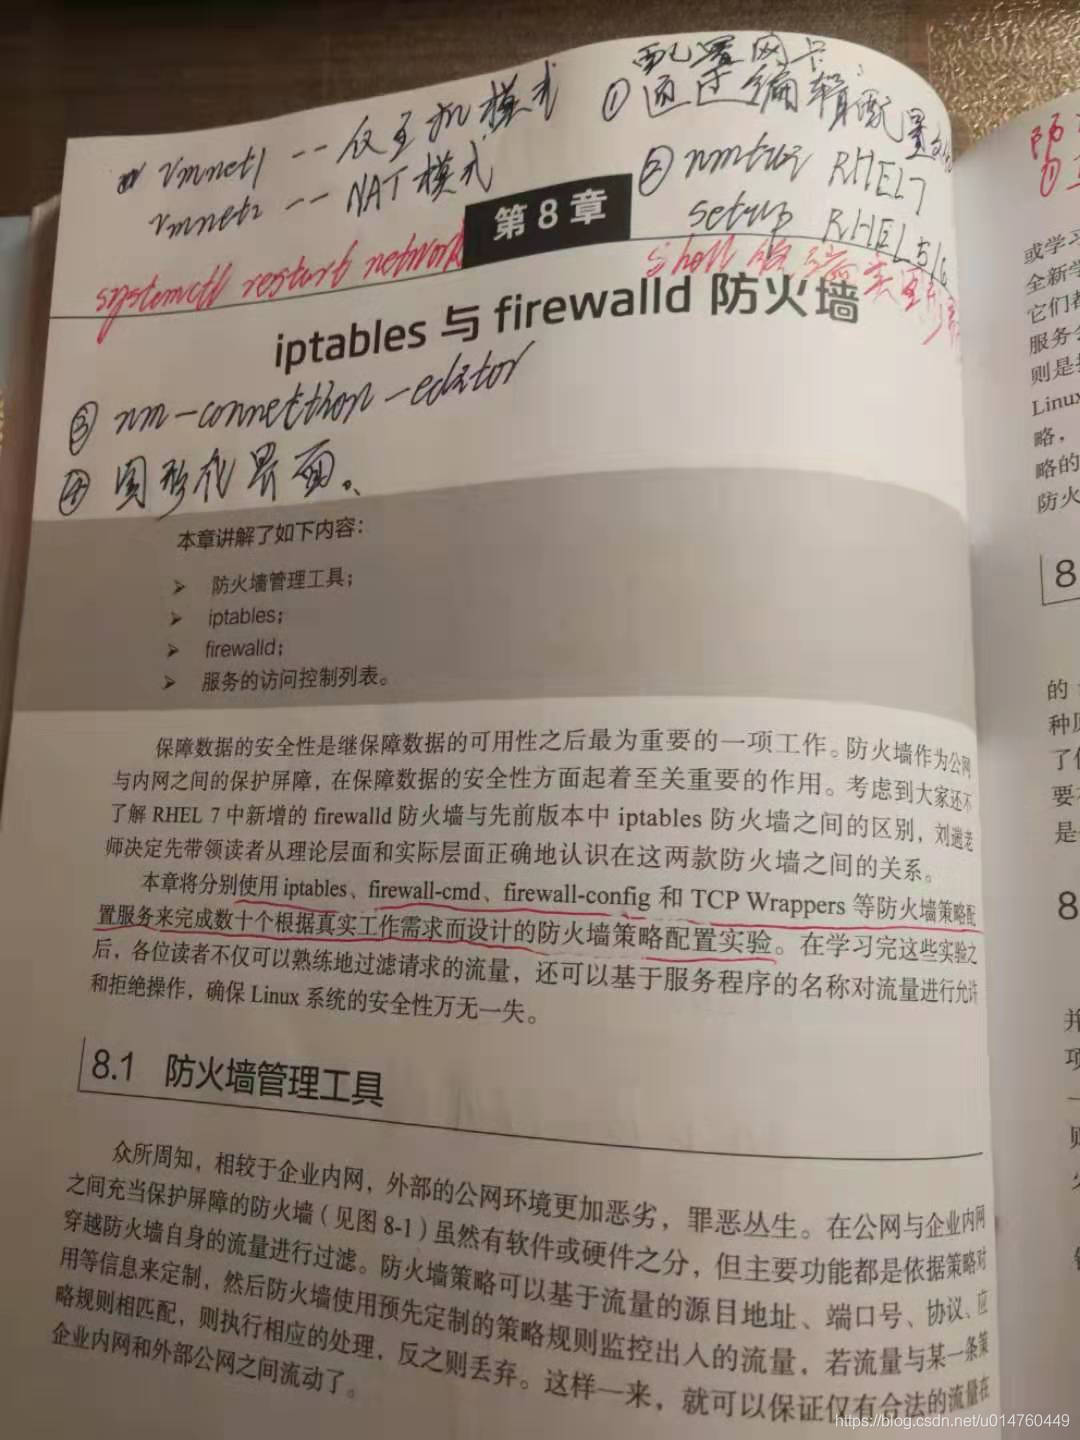 配置网卡:
① 通过编辑配置文
vmnet1 -- 仅主机模式
② nmtui RHEL7
vmnet2 -- NAT模式
setup RHEL5/6
第 8 章
systemctl restart network
iptables 与 firewalld 防火墙
③ nm-connettion-editor
④ 图形化界面。
本章讲解了如下内容：
➢ 防火墙管理工具；
➢ iptables；
➢ firewalld；
➢ 服务的访问控制列表。
保障数据的安全性是继保障数据的可用性之后最为重要的一项工作。防火墙作为公网
与内网之间的保护屏障，在保障数据的安全性方面起着至关重要的作用。考虑到大家还不
了解 RHEL 7 中新增的 firewalld 防火墙与先前版本中 iptables 防火墙之间的区别，刘遄老
师决定先带领读者从理论层面和实际层面正确地认识在这两款防火墙之间的关系。
本章将分别使用 iptables、firewall-cmd、firewall-config 和 TCP Wrappers 等防火墙策略配
置服务来完成数十个根据真实工作需求而设计的防火墙策略配置实验。在学习完这些实验之
后，各位读者不仅可以熟练地过滤请求的流量，还可以基于服务程序的名称对流量进行允许
和拒绝操作，确保 Linux 系统的安全性万无一失。
8.1 防火墙管理工具
众所周知，相较于企业内网，外部的公网环境更加恶劣，罪恶丛生。在公网与企业内网
之间充当保护屏障的防火墙（见图 8-1）虽然有软件或硬件之分，但主要功能都是依据策略对
穿越防火墙自身的流量进行过滤。防火墙策略可以基于流量的源目地址、端口号、协议、应
用等信息来定制，然后防火墙使用预先定制的策略规则监控出入的流量，若流量与某一条策
略规则相匹配，则执行相应的处理，反之则丢弃。这样一来，就可以保证仅有合法的流量在
企业内网和外部公网之间流动了。
或学习
全新学
它们都
服务
则是
Linux
略，
略的
防火
8
的
种
了
要
是
8
https://blog.csdn.net/u014760449